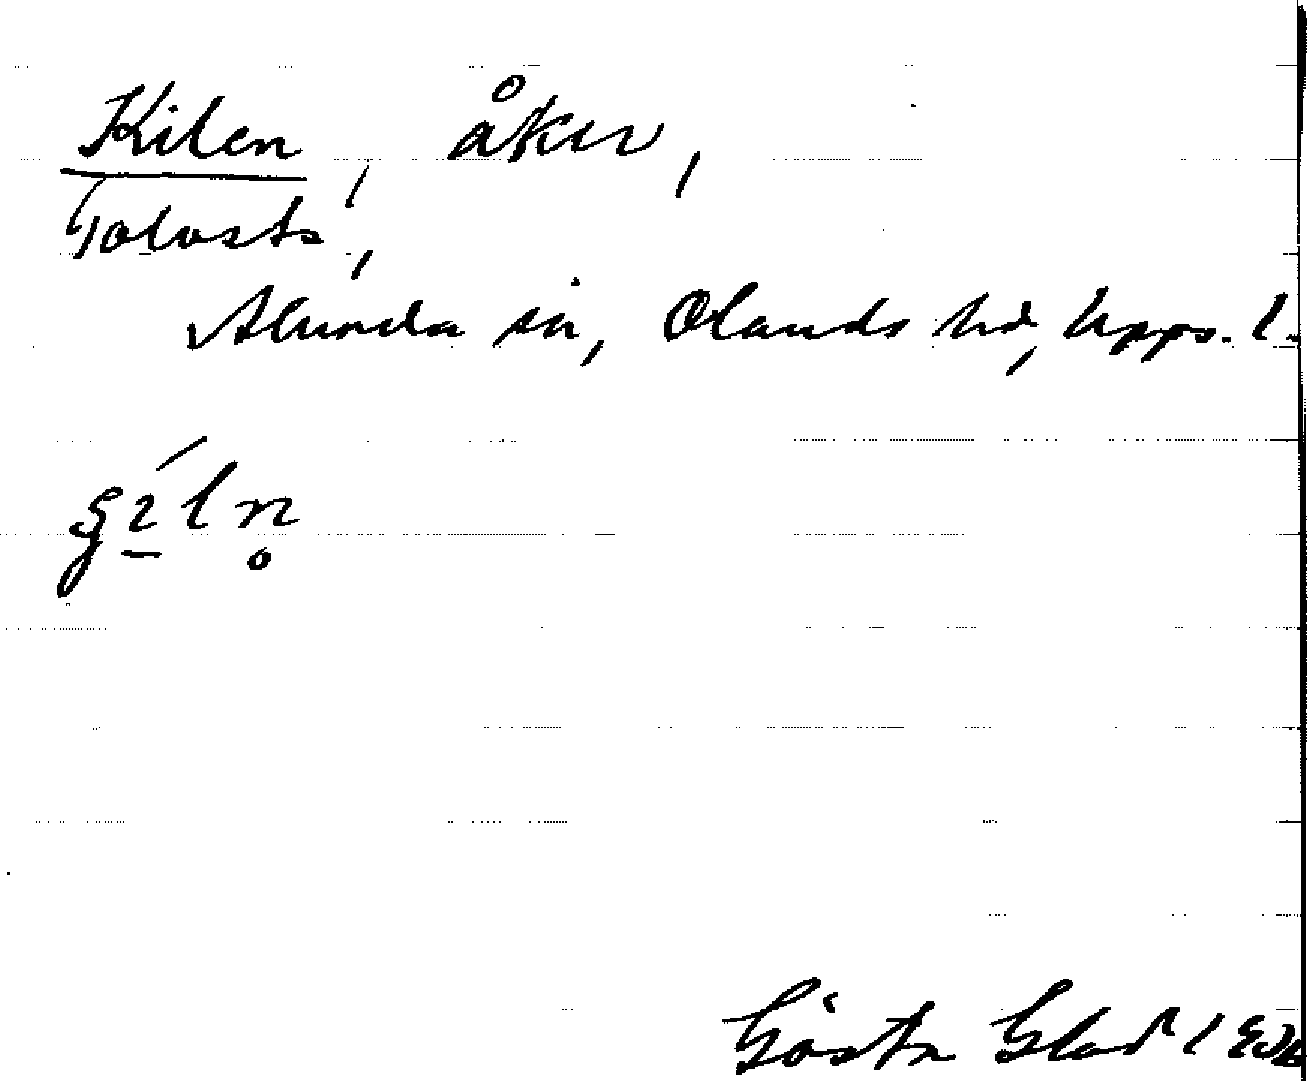 Kilen, åker,
Tolvsta,
Alunda sn, Olands hd, Upps. l.
Gösta Glad 1936